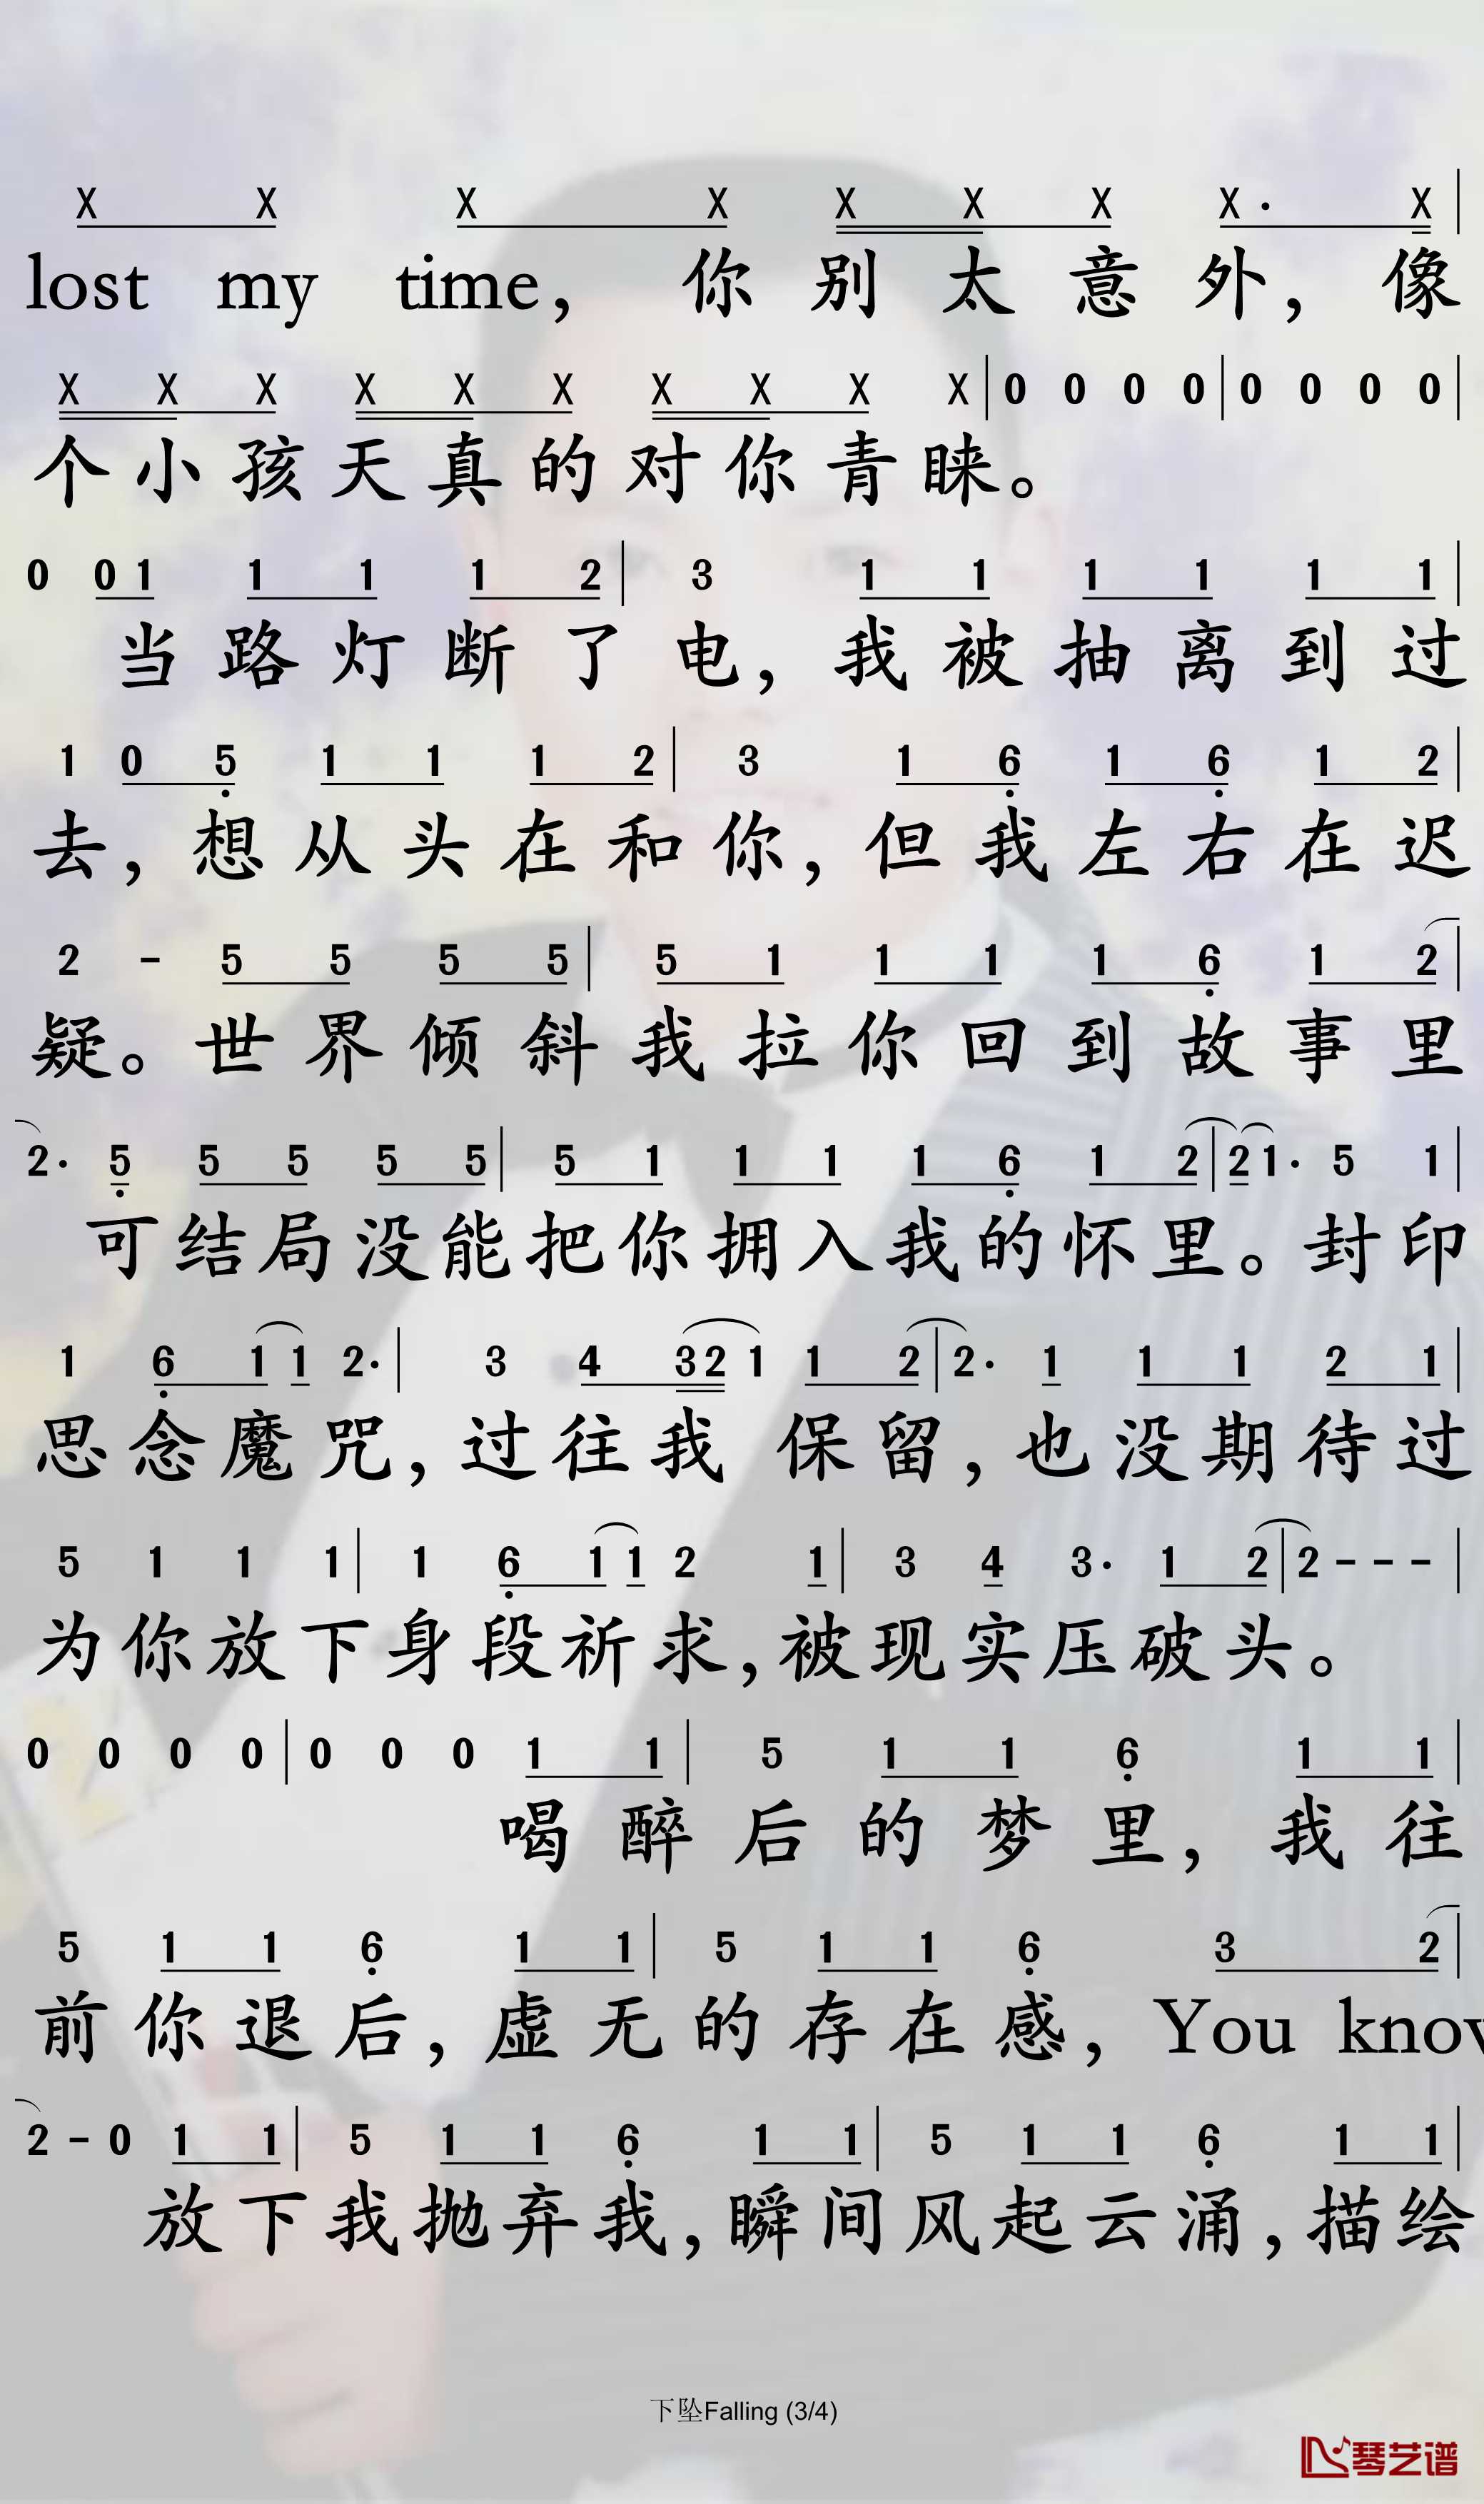 X X X X X X X X· X |
lost my time，你别太意外，像
X X X X X X X X X X | 0 0 0 0 | 0 0 0 0 |
个小孩天真的对你青睐。
0 0 1 1 1 1 2 | 3 1 1 1 1 1 1 |
当路灯断了电，我被抽离到过
1 0 5 1 1 1 2 | 3 1 6 1 6 1 2 |
去，想从头在和你，但我左右在迟
2 - 5 5 5 5 | 5 1 1 1 1 6 1 2 |
疑。世界倾斜我拉你回到故事里
2· 5 5 5 5 5 | 5 1 1 1 1 6 1 2 | 2 1· 5 1 |
可结局没能把你拥入我的怀里。封印
1 6 1 1 2· | 3 4 3 2 1 1 2 | 2· 1 1 1 2 1 |
思念魔咒，过往我保留，也没期待过
5 1 1 1 | 1 6 1 1 2 1 | 3 4 3· 1 2 | 2 - - - |
为你放下身段祈求，被现实压破头。
0 0 0 0 | 0 0 0 1 1 | 5 1 1 6 1 1 |
喝醉后的梦里，我往
5 1 1 6 1 1 | 5 1 1 6 3 2 |
前你退后，虚无的存在感，You know
2 - 0 1 1 | 5 1 1 6 1 1 | 5 1 1 6 1 1 |
放下我抛弃我，瞬间风起云涌，描绘
下坠Falling (3/4)
琴艺谱